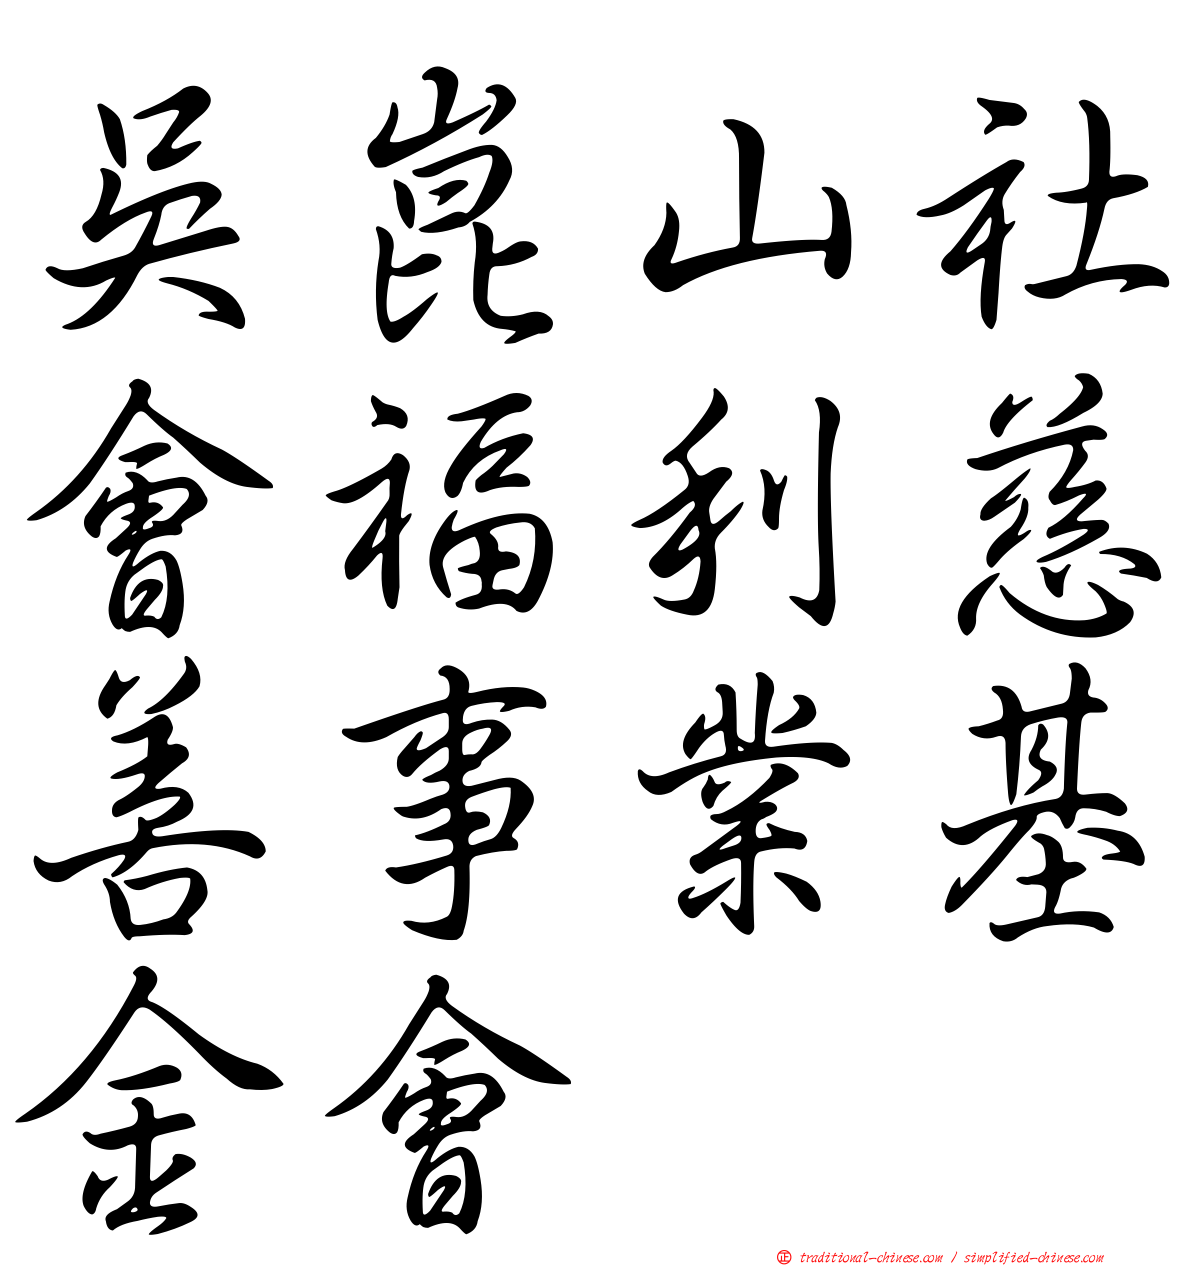 吳崑山社
會福利慈
善事業基
金會
正 traditional-chinese.com / simplified-chinese.com